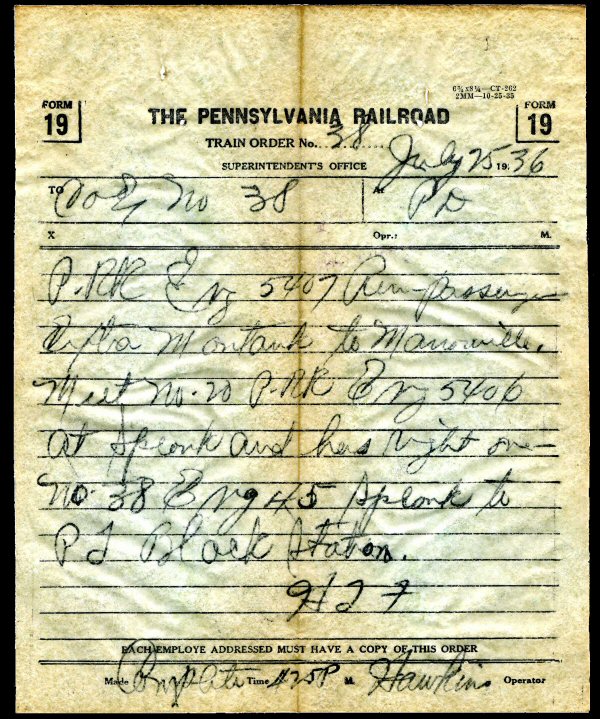 6¾x8¼—CT-262
2MM—10-25-35
FORM 19
THE PENNSYLVANIA RAILROAD
FORM 19
TRAIN ORDER No. 38
SUPERINTENDENT'S OFFICE July 25 1936
TO C&E No 38 At PD
X Opr.; M.
P.RR Eng 5407 Run passenger
Extra Montauk to Manorville.
Meet No. 20 P.RR Eng 5406
at Splonk and has right over
No. 38 Eng 45 Splonk to
PT Block Station.
EACH EMPLOYE ADDRESSED MUST HAVE A COPY OF THIS ORDER
Made Complete Time 425P M. Hawkins Operator